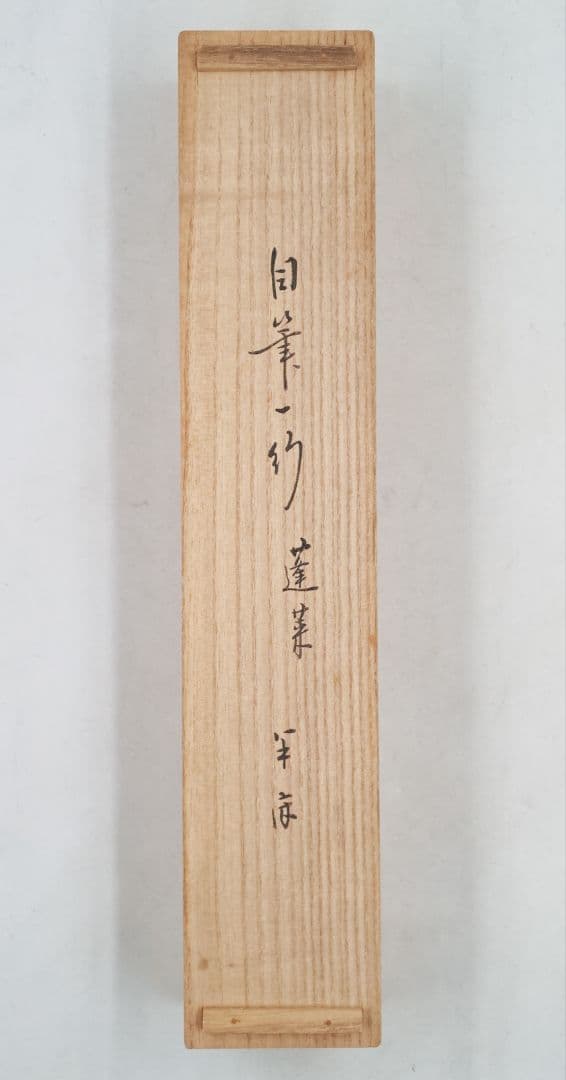 自筆一行 蓬莱 半床